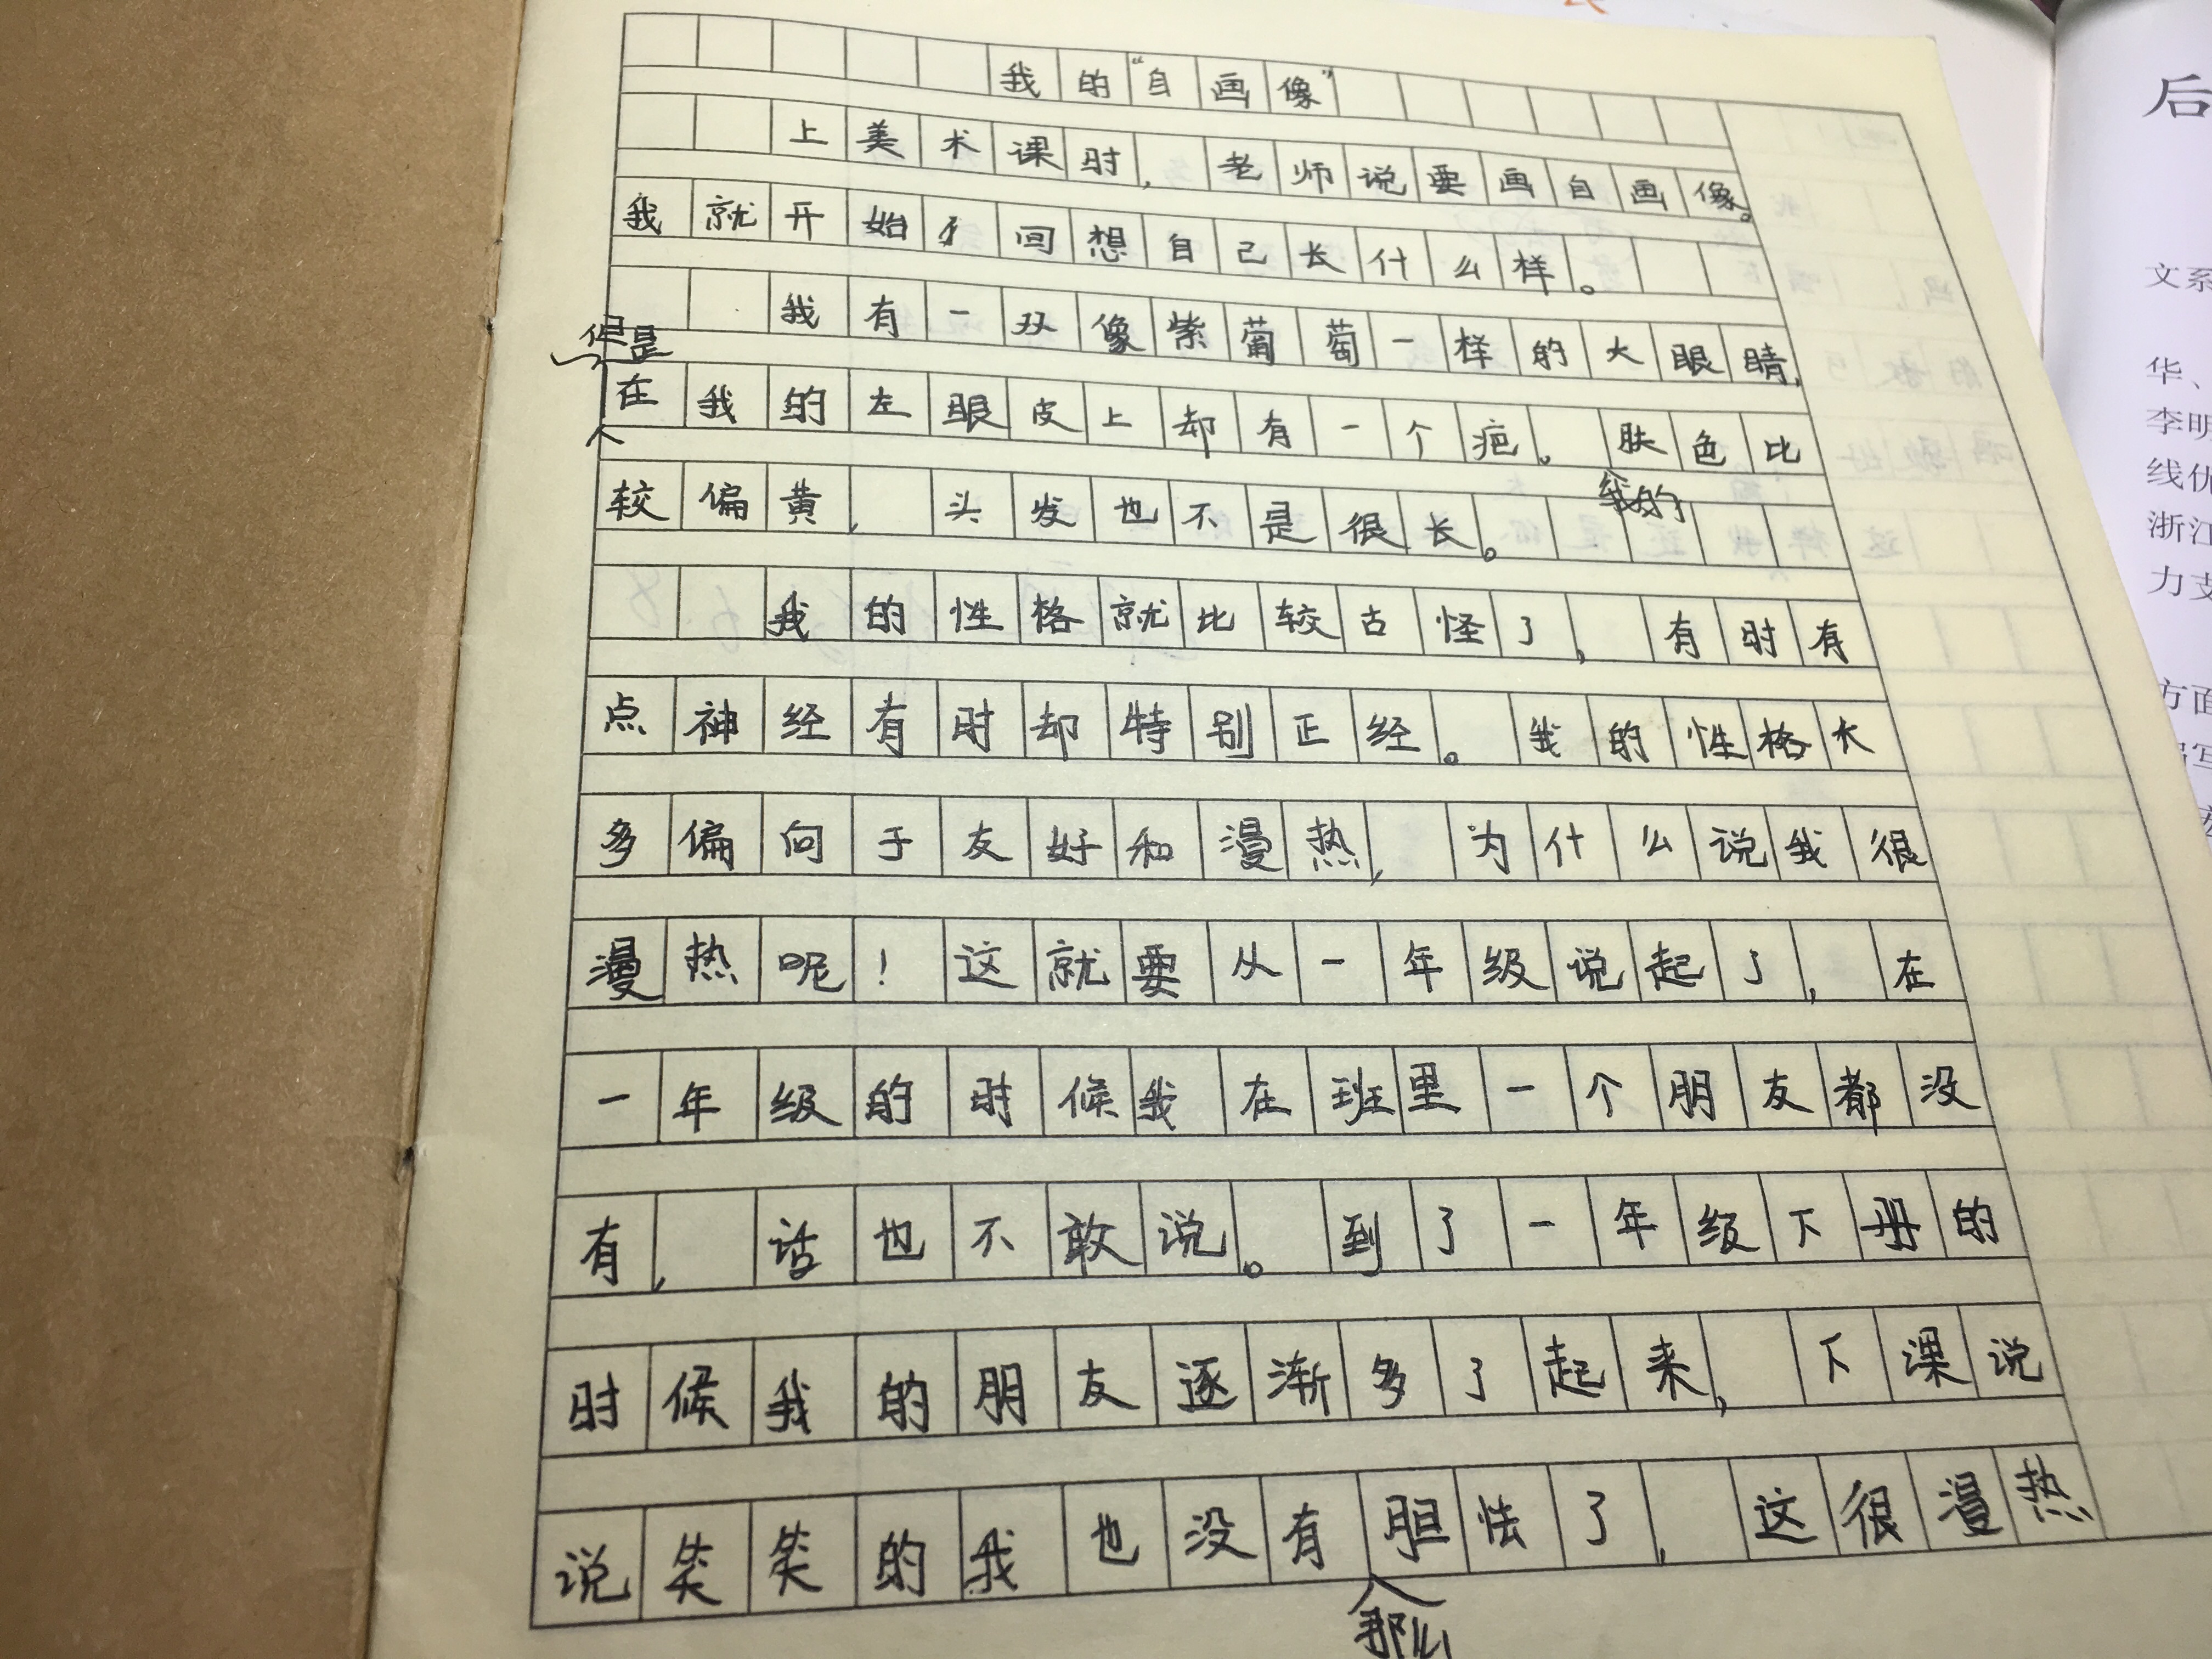 我的“自画像”
上美术课时，老师说要画自画像。
我就开始回想自己长什么样。
我有一双像紫葡萄一样的大眼睛，
但是
在我的左眼皮上却有一个疤。肤色比
我的
较偏黄，头发也不是很长。
我的性格就比较古怪了，有时有
点神经有时却特别正经。我的性格大
多偏向于友好和漫热，为什么说我很
漫热呢！这就要从一年级说起了，在
一年级的时候我在班里一个朋友都没
有，话也不敢说。到了一年级下册的
时候我的朋友逐渐多了起来，下课说
说笑笑的我也没有胆怯了，这很漫热
那么
后
文系
华、
李明
线优
浙江
力支
方面